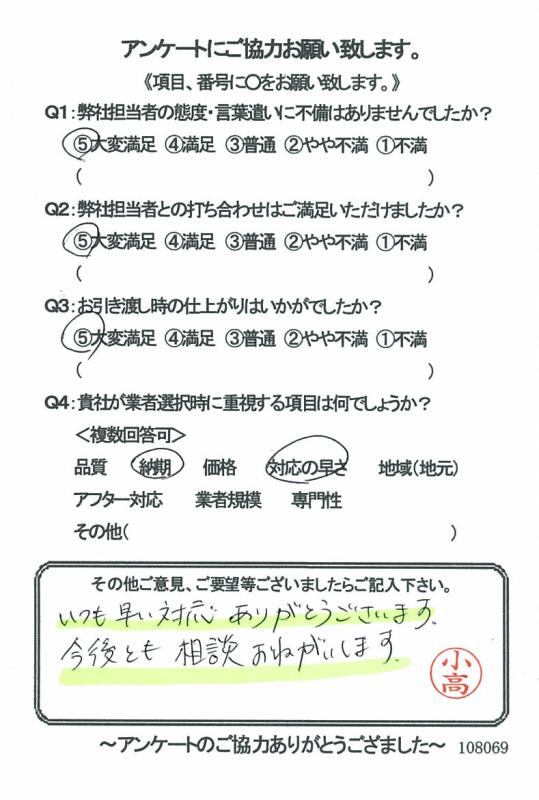 アンケートにご協力お願い致します。
《項目、番号に〇をお願い致します。》
Q1:弊社担当者の態度・言葉遣いに不備はありませんでしたか?
⑤大変満足 ④満足 ③普通 ②やや不満 ①不満
( )
Q2:弊社担当者との打ち合わせはご満足いただけましたか?
⑤大変満足 ④満足 ③普通 ②やや不満 ①不満
( )
Q3:お引き渡し時の仕上がりはいかがでしたか?
⑤大変満足 ④満足 ③普通 ②やや不満 ①不満
( )
Q4:貴社が業者選択時に重視する項目は何でしょうか?
<複数回答可>
品質 納期 価格 対応の早さ 地域(地元)
アフター対応 業者規模 専門性
その他( )
その他ご意見、ご要望等ございましたらご記入下さい。
いつも早い対応ありがとうございます。
今後とも相談おねがいします。
小高
~アンケートのご協力ありがとうござました~ 108069